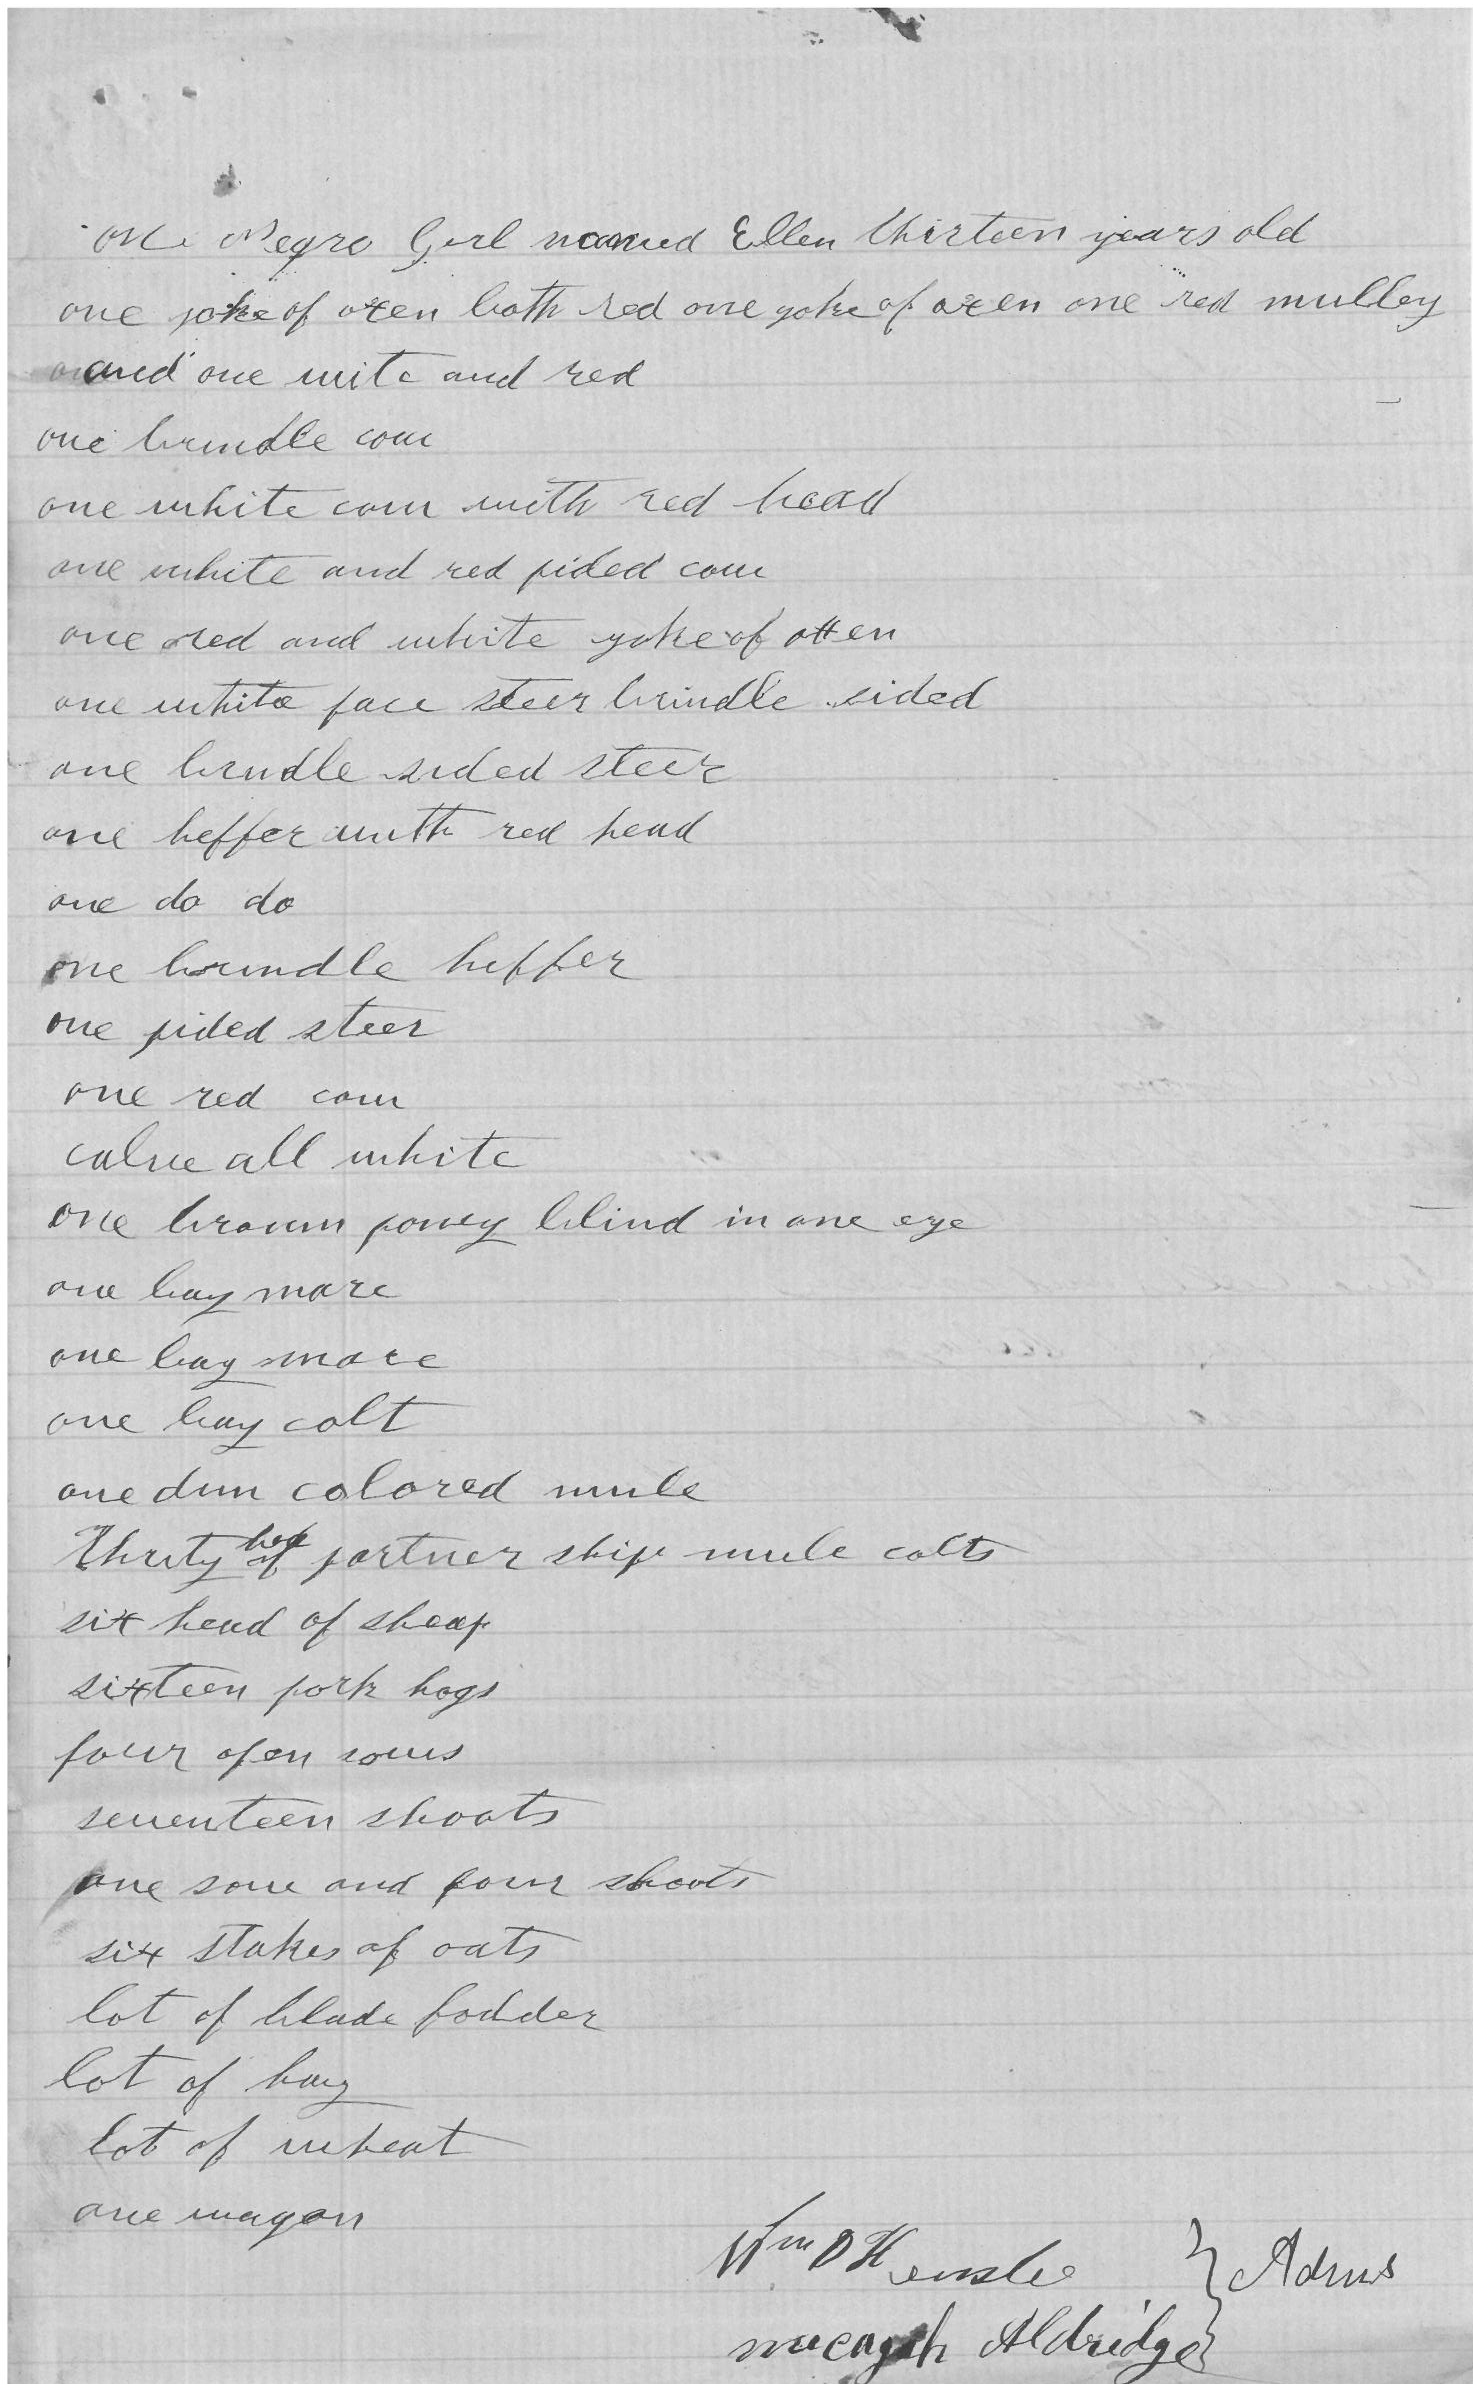 one Negro Girl named Ellen thirteen years old
one yoke of oxen both red one yoke of oxen one red mulley
and one wite and red
one brindle cow
one white cow with red head
one white and red pided cow
one red and white yoke of oxen
one white face steer brindle sided
one brindle sided steer
one heffer with red head
one do do
one brindle heffer
one pided steer
one red cow
calve all white
one brown poney blind in one eye
one bay mare
one bay mare
one bay colt
one dun colored mule
Thirty hed of partner ship mule colts
six head of sheap
sixteen pork hogs
four open sows
seventeen shoats
one sow and four shoots
six stakes of oats
lot of blade fodder
lot of hay
lot of wheat
one wagon
Wm D H } Adms
micagah Aldridge